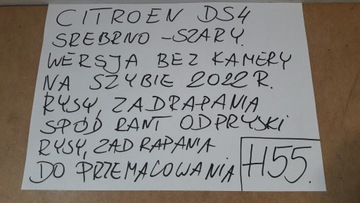 CITROEN DS4
SREBRNO-SZARY.
WERSJA BEZ KAMERY
NA SZYBIE 2022R.
RYSY, ZADRAPANIA
SPÓD RANT ODPRYSKI
RYSY, ZADRAPANIA
DO PRZEMALOWANIA
H55.